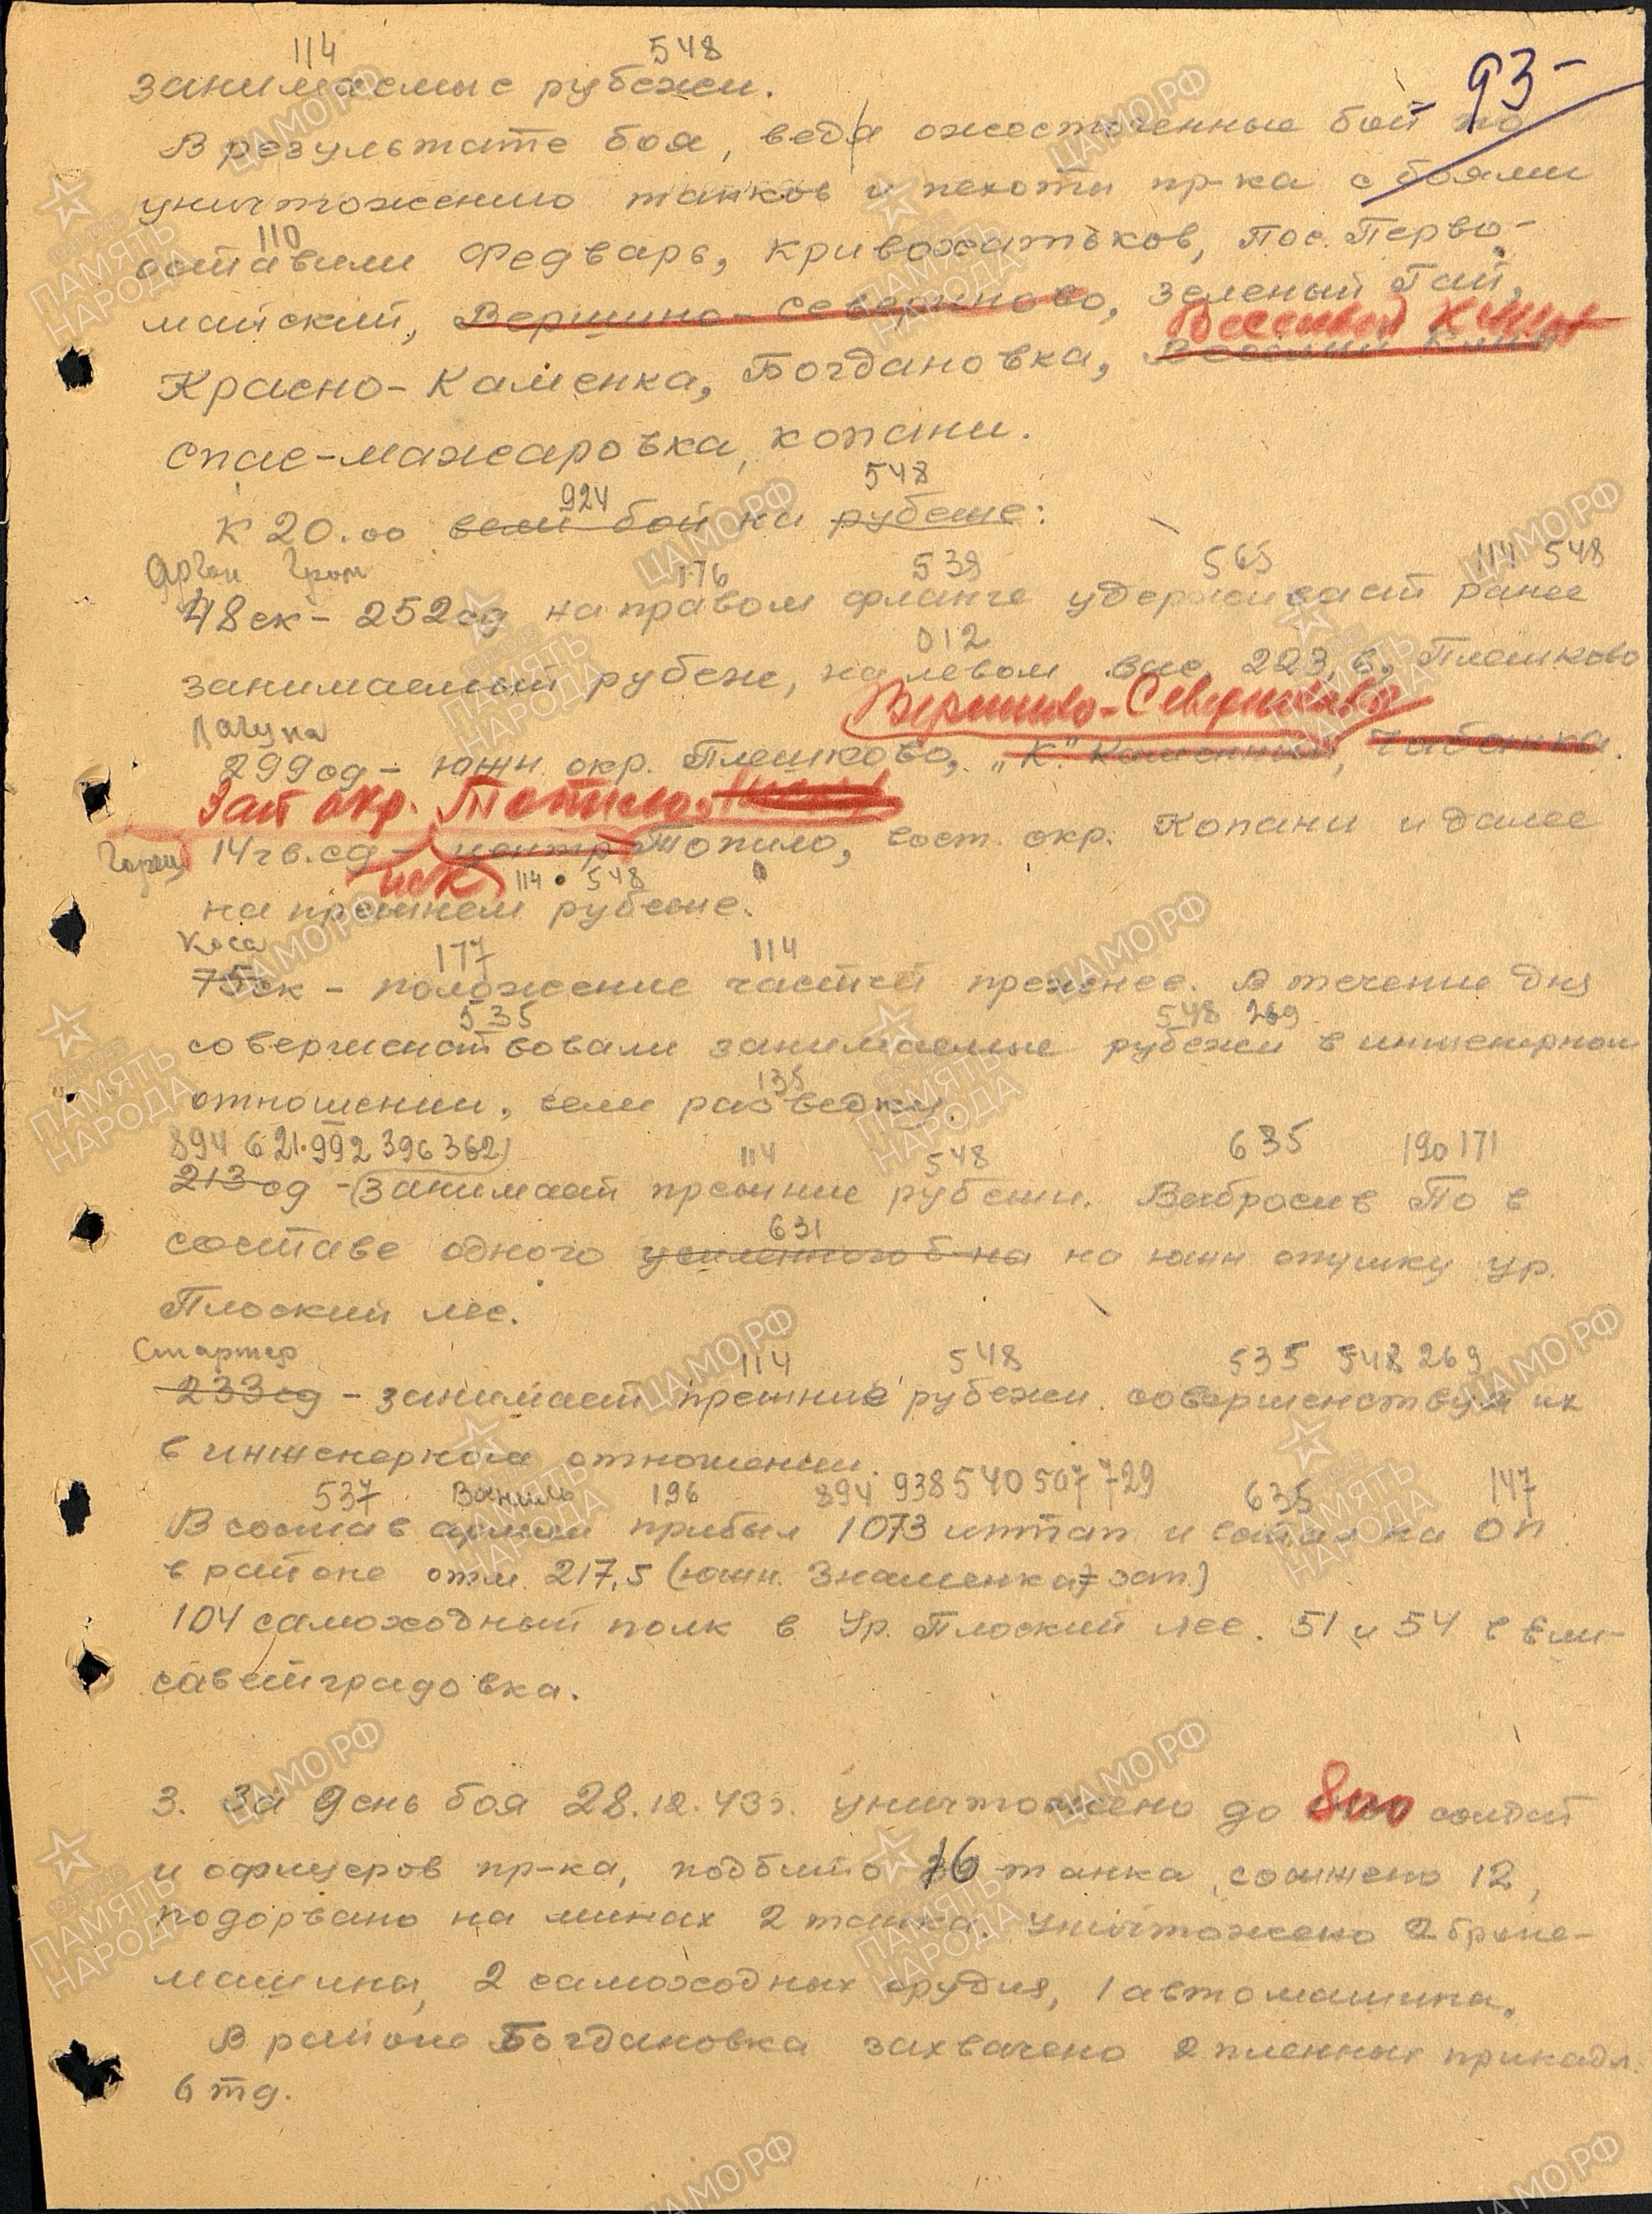 114 548
93-
занимаемые рубежи.
В результате боя, ведя ожесточенные бои по
уничтожению танков и пехоты пр-ка с боями
110
оставили Федварь, Кривожатьков, Пос. Перво-
майский, Вершино-Севериново, Зеленый Гай,
Веселый Кут
Красно-Каменка, Богдановка,
Спас-Мажаровка, Копани.
924 548
К 20.00 вели бой на рубеже:
Аргон Гром 176 539 565 114 548
48 ск - 252 сд на правом фланге удерживает ранее
012
занимаемый рубеж, на левом выс. 223,6, Плешково
Вершино-Севериново
Лагуна
299 сд - южн. окр. Плешково, „К." Каменный, Чабанка.
Зап окр. Топило
14 гв. сд - центр Топило, вост. окр. Копани и далее
иск 114 548
на прежнем рубеже.
Коса 177 114
75 ск - положение частей прежнее. В течение дня
535 548 269
совершенствовали занимаемые рубежи в инженерном
135
отношении, вели разведку.
894 621.992 396 362 114 548 635 190 171
213 сд - занимает прежние рубежи. Выбросив ПО в
631
составе одного усиленного б-на на южн опушку ур.
Плоский лес.
Стартер 114 548 535 548 269
233 сд - занимает прежние рубежи. совершенствуя их
в инженерном отношении.
537 Ваниль 196 894 938 540 507 729 635 147
В состав армии прибыл 1073 иптап и встал на ОП
в районе отм. 217,5 (южн. Знаменка зап.)
104 самоходный полк в Ур. Плоский лес. 51 и 54 в Ели-
саветградовка.
3. За день боя 28.12.43г. уничтожено до 800 солдат
и офицеров пр-ка, подбито 16 танка, сожжено 12,
подорвано на минах 2 танка. Уничтожено 2 броне-
машины, 2 самоходных орудия, 1 автомашина.
В районе Богдановка захвачено 2 пленных принадл.
6 тд.
ЦАМО.РФ
ПАМЯТЬ НАРОДА